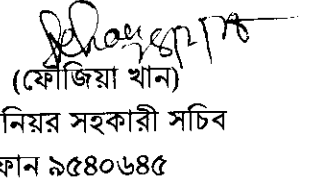 (ফৌজিয়া খান)
নিয়র সহকারী সচিব
ফান ৯৫৪০৬৪৫